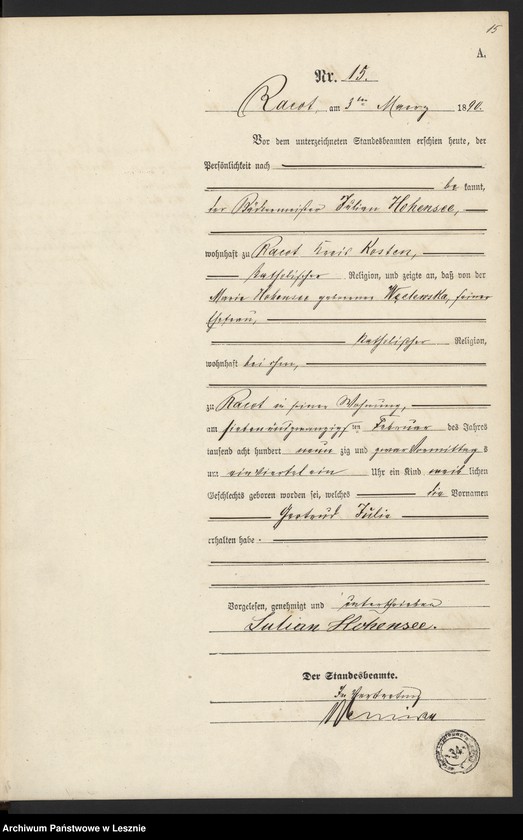 15
A.
Nr. 15.
Racot, am 3ten Maerz 1890.
Vor dem unterzeichneten Standesbeamten erschien heute, der
Persönlichkeit nach
be kannt,
der Bäckermeister Julian Hohensee,
wohnhaft zu Racot Kreis Kosten,
katholischer Religion, und zeigte an, daß von der
Maria Hohensee geborenen Węclewska, seiner
Ehefrau,
katholischer Religion,
wohnhaft bei ihm,
zu Racot in seiner Wohnung,
am siebenundzwanzigsten Februar des Jahres
tausend acht hundert neun zig und zwar Vormittag s
um einviertelein Uhr ein Kind weib lichen
Geschlechts geboren worden sei, welches die Vornamen
Gertrud Julie
erhalten habe.
Vorgelesen, genehmigt und unterschrieben
Julian Hohensee.
Der Standesbeamte.
In Vertretung
134.
Archiwum Państwowe w Lesznie